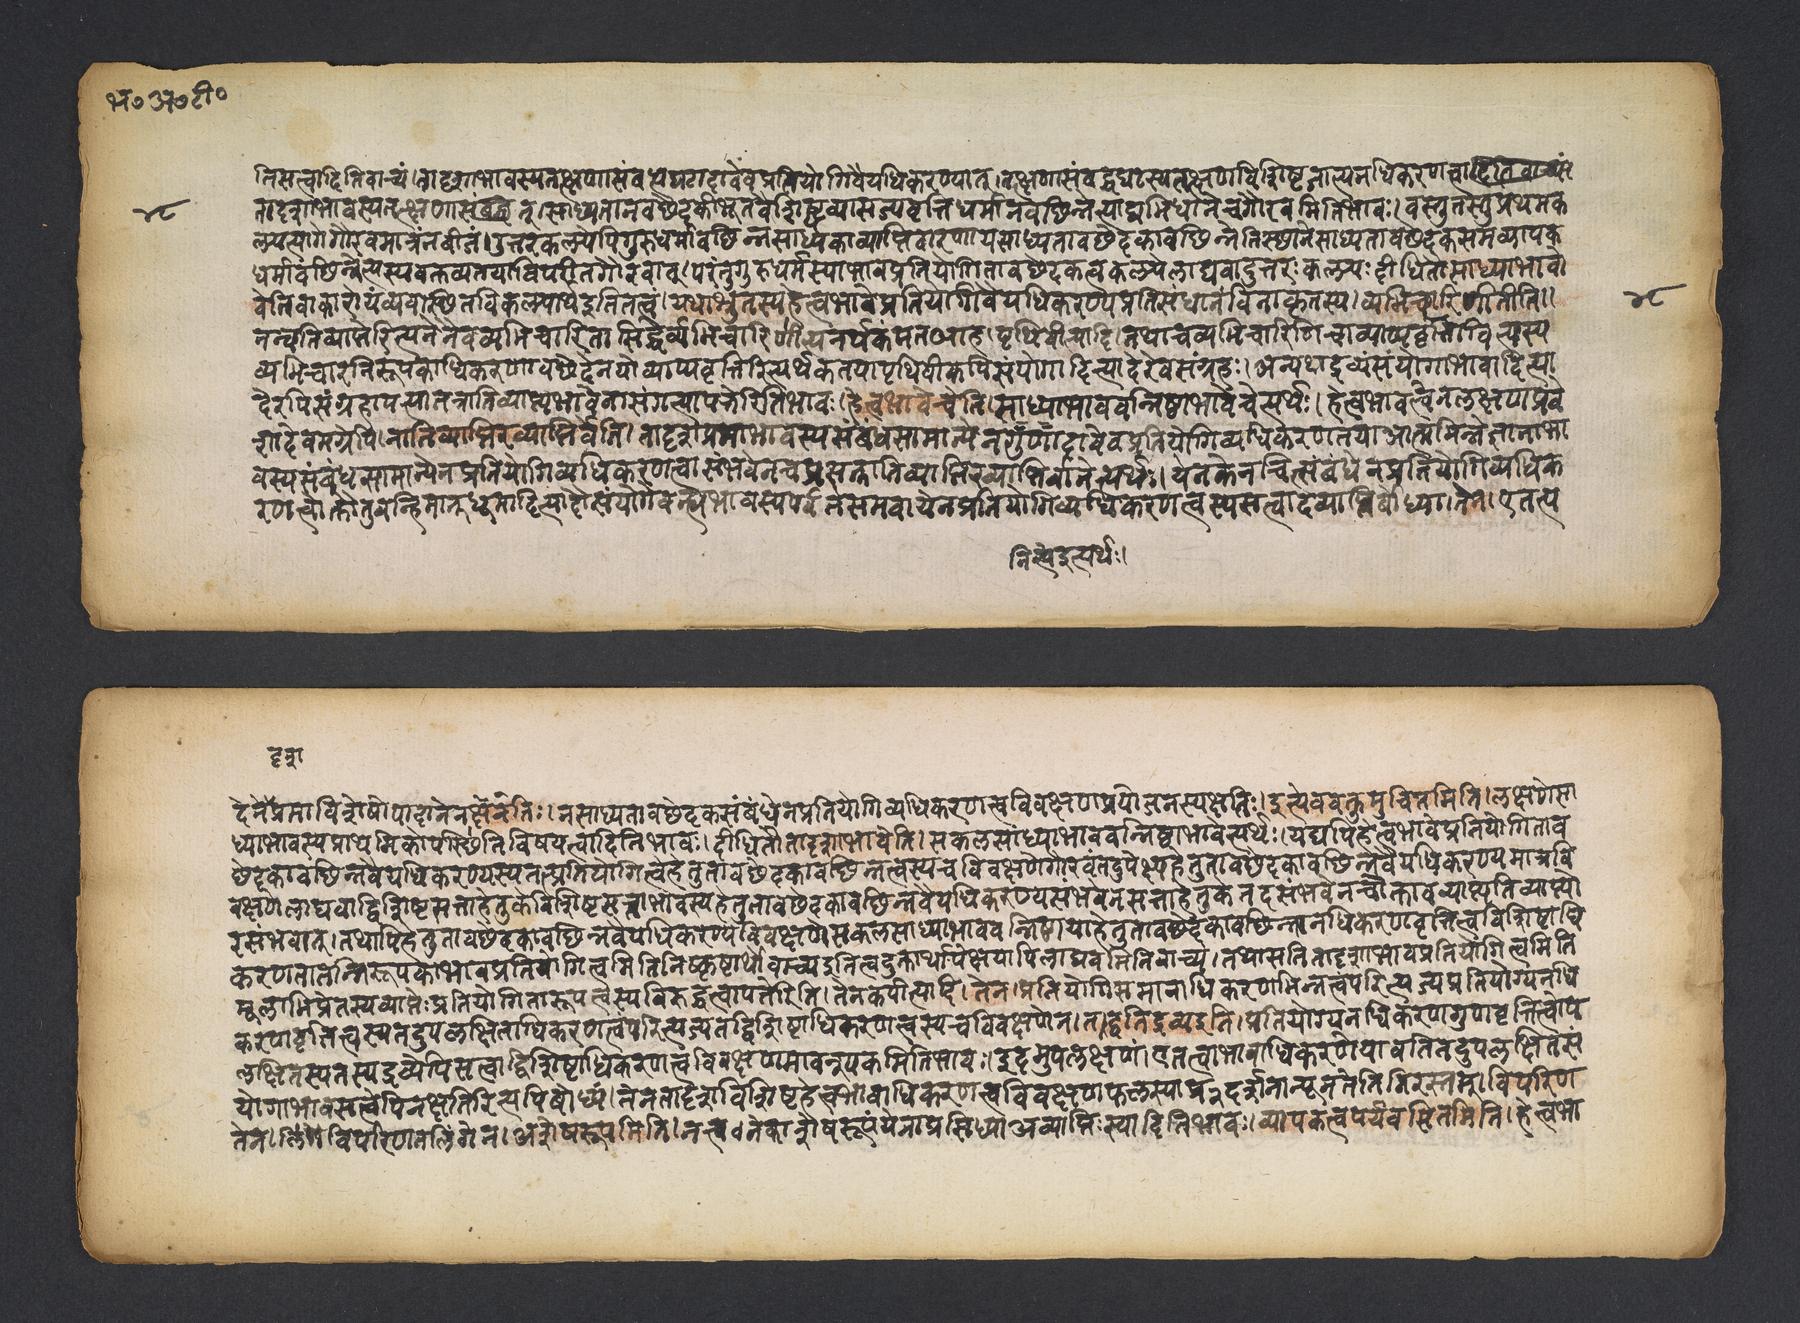 भ॰अ॰टी॰
तिसत्वादितिवाच्यं। तादृशाभावस्यतत्क्षणासंबद्धेघटादावेवप्रतियोगिवैयधिकरण्यात्। तत्क्षणसंबद्धघटस्यतत्क्षणविशिष्टजात्यनधिकरणत्वा
४८
तादृशाभावस्यतत्क्षणासंबद्ध साध्यतानवछेदकीभूतवैशिष्ट्यव्यासज्यवृत्तिधर्मानवछिन्नत्याद्यभिधानेचगौरवमितिभावः। वस्तुतस्तुप्रथमक
ल्पत्यागेगौरवमात्रंनबीजं। उत्तरकल्पेपिगुरुधर्मावछिन्नसाध्यकाव्याप्तिवारणायसाध्यतावछेदकावछिन्नेतिस्थानेसाध्यतावछेदकसमव्यापक
धर्मावछिन्नेत्यस्यवक्तव्यतयाविपरीतगौरवात्। परंतुगुरुधर्मस्याभावप्रतियोगितावछेदकत्वकल्पेलाघवादुत्तरःकल्पः। दीधितौसाध्याभावो
वेतिवाकारोयंव्यवस्थितविकल्पार्थइतितत्वं। यथाश्रुतस्यहेत्वभावेप्रतियोगिवैयधिकरण्यप्रतिसंधानंविनाकृतस्य। व्यभिचारिणीतीति॥
४८
नन्वतिव्याप्तेरित्यनेनैवव्यभिचारितासिद्धेर्व्यभिचारिणीत्यनर्थकमतआह। पृथिवीत्यादि। तथाचव्यभिचारिणिचाव्याप्यवृत्तावित्यस्य
व्यभिचारनिरूपकाधिकरणावछेदेनयोव्याप्यवृत्तिरित्यर्थकतयापृथिवीकपिसंयोगादित्यादेरेवसंग्रहः। अन्यथाद्रव्यंसंयोगाभावादित्या
देरपिसंग्रहापत्त्यातत्रातिव्याप्त्यभावेनासंगत्यापत्तेरितिभावः। हेत्वभावेचेति। साध्याभाववन्निष्ठाभावेचेत्यर्थः। हेत्वभावत्वेनलक्षणाप्रवे
शादेवमग्रेपि। नातिव्याप्तिरव्याप्तिर्वेति। तादृशप्रमाभावस्यसंबंधसामान्येनगुणादावेवप्रतियोगिव्यधिकरणतयाआत्मभिन्नेज्ञानाभा
वस्यसंबंधसामान्येनप्रतियोगिव्यधिकरणत्वासंभवेनचप्रसक्तातिव्याप्तिरव्याप्तिर्वानेत्यर्थः। येनकेनचित्संबंधेनप्रतियोगिव्यधिक
रणत्वोक्तौतुवन्हिमान्धूमादित्यादौसंयोगेनवन्ह्यभावस्यपर्वतेसमवायेनप्रतियोगिव्यधिकरणत्वस्यसत्वादव्याप्तिर्बोध्या। तेन। एतत्प
तित्यइत्यर्थः।
दृशा
देनैप्रमाविशेषोपादानेन क्षतिः। नसाध्यतावछेदकसंबंधेनप्रतियोगिव्यधिकरणत्वविवक्षणप्रयोजनस्यक्षतिः। इत्येववक्तुमुचितमिति। लक्षणेसा
ध्याभावस्यप्राथमिकोपस्थितिविषयत्वादितिभावः। दीधितौतादृशाभावेति। सकलसाध्याभाववन्निष्ठाभावेत्यर्थः। यद्यपिहेत्वभावेप्रतियोगिताव
छेदकावछिन्नवैयधिकरण्यस्यतत्प्रतियोगित्वेहेतुतावछेदकावछिन्नत्वस्यचविवक्षणेगौरवंतदुपेक्ष्यहेतुतावछेदकावछिन्नवैयधिकरण्यमात्रवि
वक्षणेलाघवाद्विशिष्टसत्ताहेतुकेविशिष्टसत्ताभावस्यहेतुतावछेदकावछिन्नवैयधिकरण्यसंभवेनसत्ताहेतुकेतदसंभवेनचोक्ताव्याप्त्यतिव्याप्त्यो
रसंभवात्। तथापिहेतुतावछेदकावछिन्नवैयधिकरण्यविवक्षणेसकलसाध्याभाववन्निष्ठायाहेतुतावछेदकावछिन्नानधिकरणवृत्तित्वविशिष्टाधि
करणतातन्निरूपकाभावप्रतियोगित्वमितिनिष्कृष्टार्थोवाच्यइतित्वदुक्तार्थापेक्षयापिलाघवमितिवाच्यं। तथासतितादृशाभावप्रतियोगित्वमिति
मूलाभिप्रेतस्यव्याप्तेःप्रतियोगितारूपत्वस्यविरुद्धत्वापत्तेरिति। तेनकपीत्यादि। तेन। प्रतियोगिसमानाधिकरणभिन्नत्वंपरित्यज्यप्रतियोग्यनधि
करणवृत्तित्वस्यतदुपलक्षिताधिकरणत्वंपरित्यज्यतद्विशिष्टाधिकरणत्वस्यचविवक्षणेन। तद्वतिद्रव्यइति। प्रतियोग्यनधिकरणगुणवृत्तित्वोप
लक्षितस्यतस्यद्रव्येपिसत्वाद्विशिष्टाधिकरणत्वविवक्षणमावश्यकमितिभावः। इदमुपलक्षणं। एतत्वाभावाधिकरणेयावतितदुपलक्षितसं
योगाभावसत्वेपिनक्षतिरित्यपिबोध्यं। तेनतादृशविशिष्टहेत्वभावाधिकरणत्वविवक्षणफलस्याप्रदर्शनान्न्यूनतेतिनिरस्तं। विपरिण
तेन। लिंगविपरिणतलिंगेन। अशेषरूपमिति। नत्वनेकाशेषरूपंयेनाप्रसिध्याअव्याप्तिःस्यादितिभावः। व्यापकत्वपर्यवसितमिति। हेत्वभा